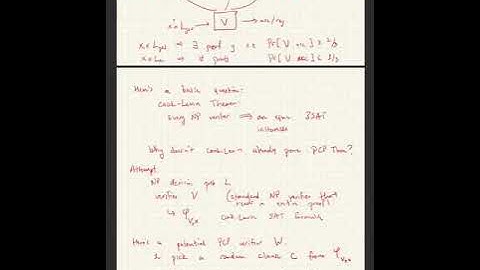 x ∈ L_yes → V → acc/rej
x ∈ L_yes ⇒ ∃ proof y s.t. Pr[V acc] ≥ 2/3
Pr[V acc] ≤ 1/3
Here's a basic question:
Cook-Levin Theorem:
Every NP verifier ⟹ an equiv 3SAT
instance
Why doesn't Cook-Levin already prove PCP Thm?
Attempt:
NP decision prob L
verifier V (standard NP verifier that
entire proof)
↳ φ_{V,x} Cook-Levin SAT formula
Here's a potential PCP verifier W.
pick a random clause C from φ_{V,x}